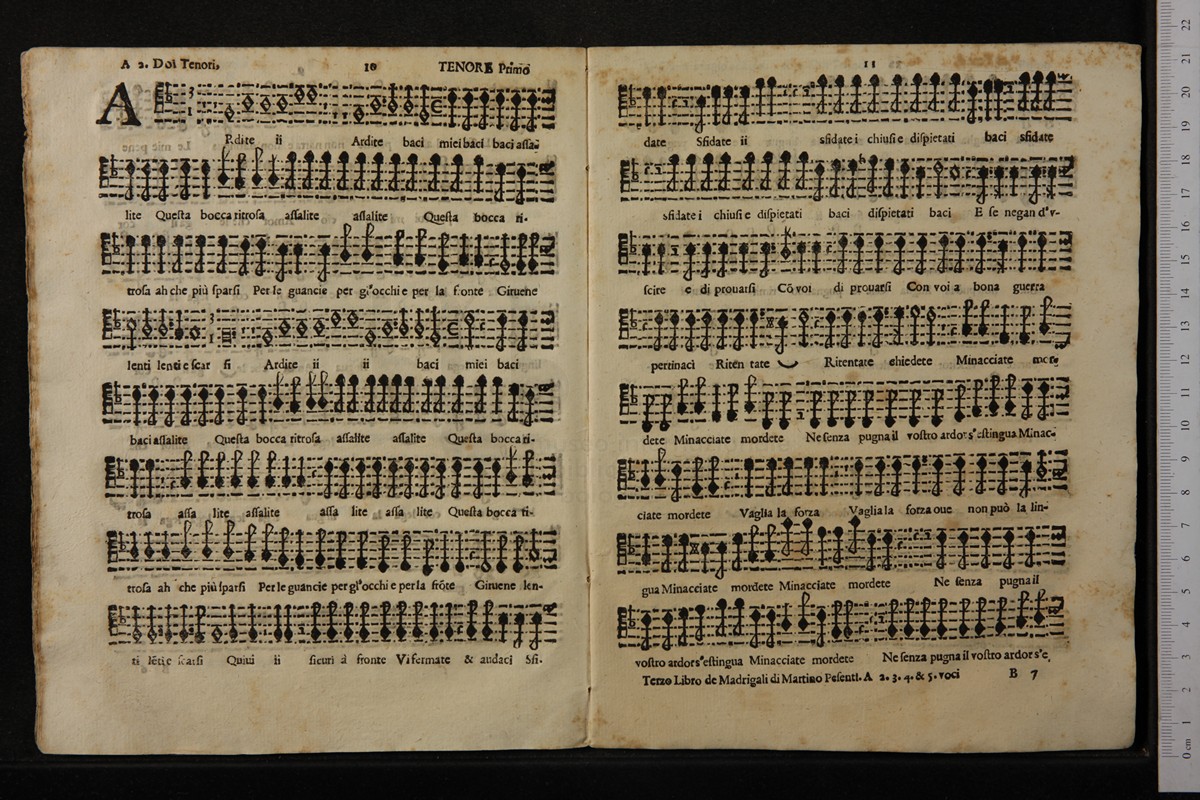 A 2. Doi Tenori,
10
TENORE Primo
A Rdite ii Ardite baci miei baci baci assa-
lite Questa bocca ritrosa assalite assalite Questa bocca ri-
trosa ah che più sparsi Per le guancie per gl'occhi e per la fronte Giruene
lenti lenti e scar si Ardite ii ii baci miei baci
baci assalite Questa bocca ritrosa assalite assalite Questa bocca ri-
trosa assa lite assalite assa lite assa lite Questa bocca ri-
trosa ah che più sparsi Per le guancie per gl'occhi e per la frōte Giruene len-
ti lēti e scarsi Quiui ii sicuri à fronte Vi fermate & audaci Sfi-
11
date Sfidate ii sfidate i chiusi e dispietati baci sfidate
sfidate i chiusi e dispietati baci dispietati baci E se negan d'v-
scire e di prouarsi Cō voi di prouarsi Con voi a bona guerra
pertinaci Riten tate Ritentate chiedete Minacciate mor-
dete Minacciate mordete Ne senza pugna il vostro ardor s'estingua Minac-
ciate mordete Vaglia la forza Vaglia la forza oue non può la lin-
gua Minacciate mordete Minacciate mordete Ne senza pugna il
vostro ardor s'estingua Minacciate mordete Ne senza pugna il vostro ardor s'e
Terzo Libro de Madrigali di Martino Pesenti. A 2. 3. 4. & 5. voci B 7
22
21
20
19
18
17
16
15
14
13
12
11
10
9
8
7
6
5
4
3
2
1
0 cm